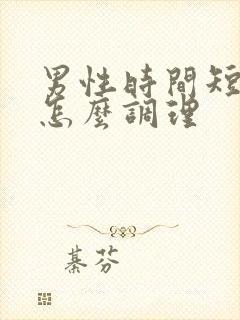 男性時間短
怎麼調理
綦芬